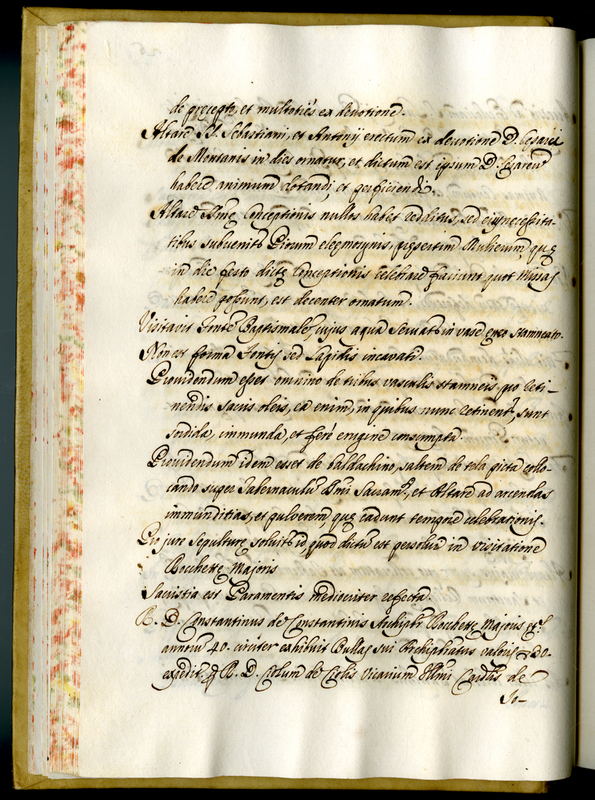 de precepto et multoties ex devotione.
Altare SS. Sebastiani, et Antonij erectum ex devotione D. Cesaris
de Montanis in dies ornatur, et dictum est ipsum D. Cesarem
habere animum dotandi, et perficiendi.
Altare Smę Conceptionis nullos habet redditus, sed eius necessita-
tibus subvenitr Piorum eleęmosynis, pręsertim Mulierum, quę
in die festo dictę Conceptionis celebrare faciunt quot Missas
habere possunt, est decenter ornatum.
Visitavit Fontē Baptismalē, cujus aqua servatr in vase ęreo stamneato.
Non est forma Fontis sed Lapidis incavati.
Providendum esset omnino de tribus vasculis stamneis pro reti-
nendis sacris oleis, ea enim, in quibus nunc retinentr, sunt
sordida, immunda, et ferè erugine consumpta.
Providendum idem esset de baldachino, saltem de tela picta collo-
cando super Tabernaculū Smi Sacramti, et Altare ad arcendas
immunditias, et pulverem quę cadunt tempore celebrationis.
Pro jure sepulturę solvitr id, quod dictū est persolvi in visitatione
Rocchettę Majoris
Sacristia est Paramentis mediocriter refecta.
R. D. Constantinus de Constantinis Archipbr Rocchettę Majoris
annorū 40. circiter exhibuit Bullas sui Archipbratus
expedit. p R. D. de Vicarium Illmi Cardlis de